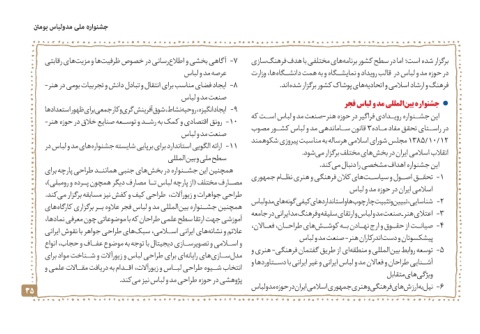 جشنواره ملی مدولباس بومتن
برگزار شده است؛ اما در سطح کشور برنامه‌های مختلفی با هدف فرهنگ‌سازی
در حوزه مد و لباس در قالب رویداد و نمایشگاه و به همت دانشگاه‌ها، وزارت
فرهنگ و ارشاد اسلامی و اتحادیه‌های پوشاک کشور برگزار شده‌اند.
جشنواره بین‌المللی مد و لباس فجر
این جشنواره رویدادی فراگیر در حوزه هنر-صنعت مد و لباس است که
در راستای تحقق مفاد ماده۳ قانون ساماندهی مد و لباس کشور مصوب
۱۳۸۵/۱۰/۱۲ مجلس شورای اسلامی هرساله به مناسبت پیروزی شکوهمند
انقلاب اسلامی ایران در بخش‌های مختلف برگزار می‌شود.
این جشنواره اهداف مشخصی را دنبال می‌کند.
۱- تحقق اصول و سیاست‌های کلان فرهنگی و هنری نظام جمهوری
اسلامی ایران در حوزه مد و لباس
۲- شناسایی، تبیین و تثبیت چارچوب‌ها و استانداردهای کیفی گونه‌های مدولباس
۳- اعتلای هنر-صنعت مد ولباس و ارتقای سلیقه و فرهنگ مد ایرانی در جامعه
۴- صیانت از حقوق و ارج نهادن به کوشش‌های طراحان، فعالان،
پیشکسوتان و دست‌اندرکاران هنر- صنعت مد و لباس
۵- توسعه روابط بین‌المللی و منطقه‌ای از طریق گفتمان فرهنگی- هنری و
آشنایی طراحان و فعالان مد و لباس ایرانی و غیر ایرانی با دستاوردها و
ویژگی‌های متقابل
۶- نیل به ارزش‌های فرهنگی و هنری جمهوری اسلامی ایران در حوزه مد و لباس
۷- آگاهی بخشی و اطلاع‌رسانی در خصوص ظرفیت‌ها و مزیت‌های رقابتی
عرصه مد و لباس
۸- ایجاد فضای مناسب برای انتقال و تبادل دانش و تجربیات بومی در هنر-
صنعت مد و لباس
۹- ایجاد انگیزه، روحیه نشاط، شوق آفرینش‌گری و کار جمعی برای ظهور استعدادها
۱۰- رونق اقتصادی و کمک به رشد و توسعه صنایع خلاق در حوزه هنر-
صنعت مد و لباس
۱۱- ارائه الگویی استاندارد برای برپایی شایسته جشنواره‌های مد و لباس در
سطح ملی و بین‌المللی
همچنین این جشنواره در بخش‌های جنبی هماننـد طراحی پارچه برای
مصارف مختلف (از پارچه لباس تا مصارف دیگر همچون پرده و رومبلی)،
طراحی جواهرات و زیورآلات، طراحی کیف و کفش نیز مسابقه برگزار می‌کند.
همچنین جشنواره بین‌المللی مد و لباس فجر علاوه بـر برگزاری کارگاه‌های
آموزشی جهت ارتقا سطح علمی طراحان که با موضوعاتی چون معرفی نمادها،
علائم و نشانه‌های ایرانی اسلامی، سبک‌های طراحی جواهر با نقوش ایرانی
و اسلامی و تصویرسازی دیجیتال با توجه به موضوع عفـاف و حجاب، انواع
مدل‌سازی‌های رایانه‌ای برای طراحی لباس و زیورآلات و شناخت مواد برای
انتخاب شیوه طراحی لباس و زیورآلات، اقدام به دریافت مقالات علمی و
پژوهشی در حوزه طراحی مد و لباس نیز می‌کند.
۳۵